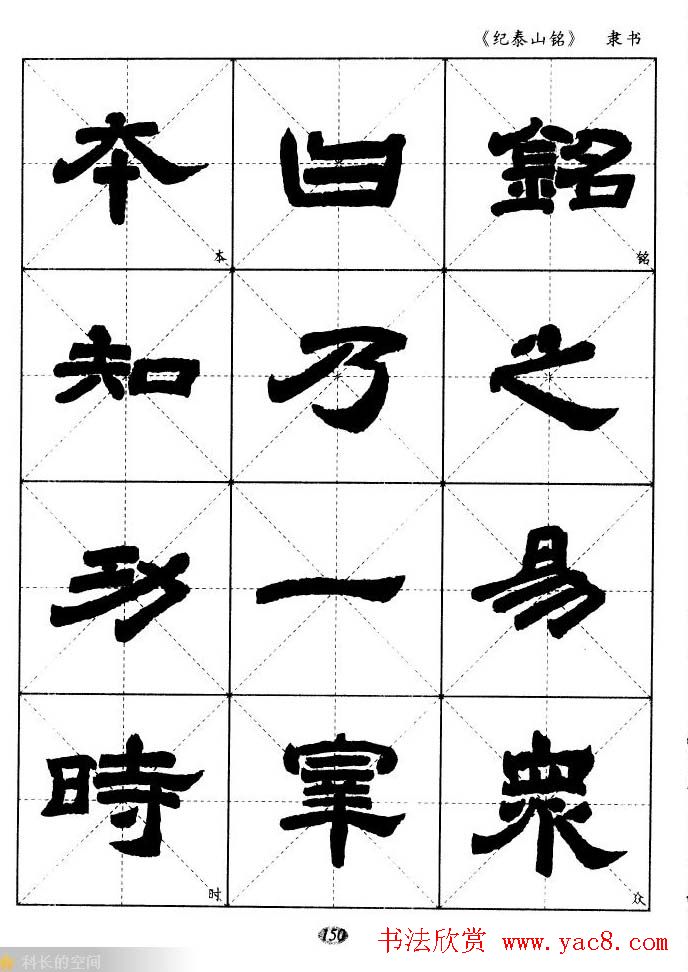 《纪泰山铭》 隶书
銘之易衆
乃一宰
本知時
铭
众
本
时
150
书法欣赏 www.yac8.com
科长的空间